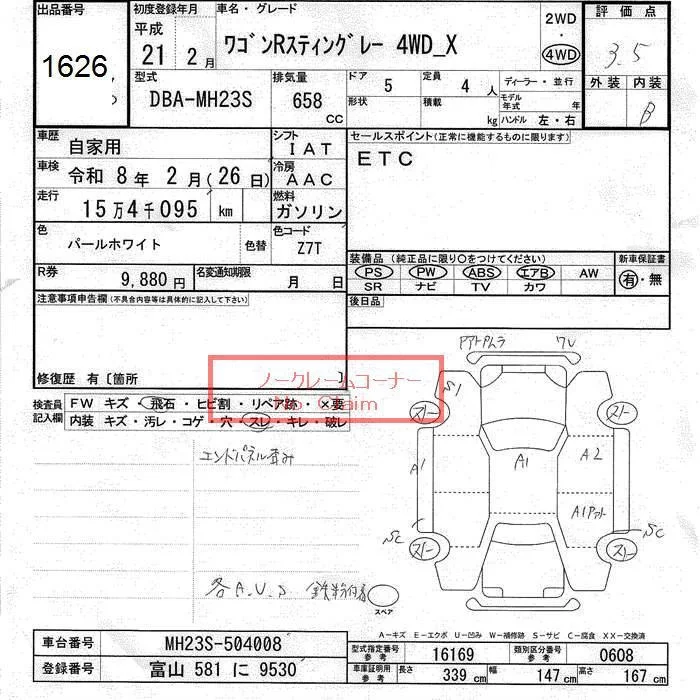 出品番号 初度登録年月 車名・グレード 2WD 評価点
1626 平成 ワゴンRスティングレー 4WD_X ・ 3.5
21年 2月 4WD 外装 内装
型式 排気量 ドア 定員 ディーラー・並行 B
DBA-MH23S 658 CC 5 4人 モデル年式 年
形状 積載 kg ハンドル 左・右
車歴 自家用 シフト IAT セールスポイント(正常に機能するものに限ります)
車検 令和 8年 2月(26日) 冷房 AAC ETC
走行 15万4千095 km 燃料 ガソリン
色 パールホワイト 色替 色コード Z7T
装備品(純正品に限り○をつけてください) 新車保証書
R券 9,880円 名変通知期限 月 日 PS PW ABS エアB AW 有・無
SR ナビ TV カワ
注意事項申告欄(不具合内容等は具体的に記入して下さい) 後日品
修復歴 有〔箇所 〕
ノークレームコーナー
No Claim
検査員記入欄 FW キズ・飛石・ヒビ割・リペア跡・×要
内装 キズ・汚レ・コゲ・穴・スレ・キレ・破レ
エンドパネル歪み
各A.U.S 鉄粉付着
S1
ストー ストー
A1 A1 A2
A1アト
SC SC
ストー ストー
スペア
A-キズ E-エクボ U-凹み W-補修跡 S-サビ C-腐食 XX-交換済
車台番号 MH23S-504008 型式指定番号 参考 16169 類別区分番号 参考 0608
登録番号 富山 581 に 9530 車庫証明用 参考 長さ 339 cm 幅 147 cm 高さ 167 cm